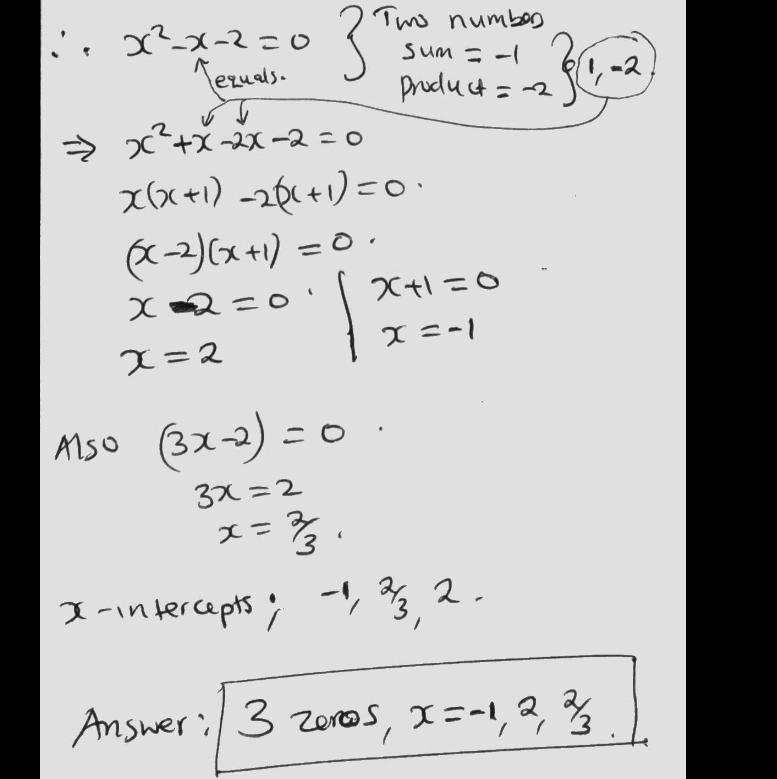 ∴ x²-x-2=0 } Two numbers
sum = -1
product = -2 } 1, -2
equals.
⇒ x²+x-2x-2=0
x(x+1) -2(x+1)=0.
(x-2)(x+1) = 0.
x-2=0 | x+1=0
x=2 | x=-1
Also (3x-2) = 0.
3x=2
x= 2/3.
x-intercepts; -1, 2/3, 2.
Answer: 3 zeros, x=-1, 2, 2/3.